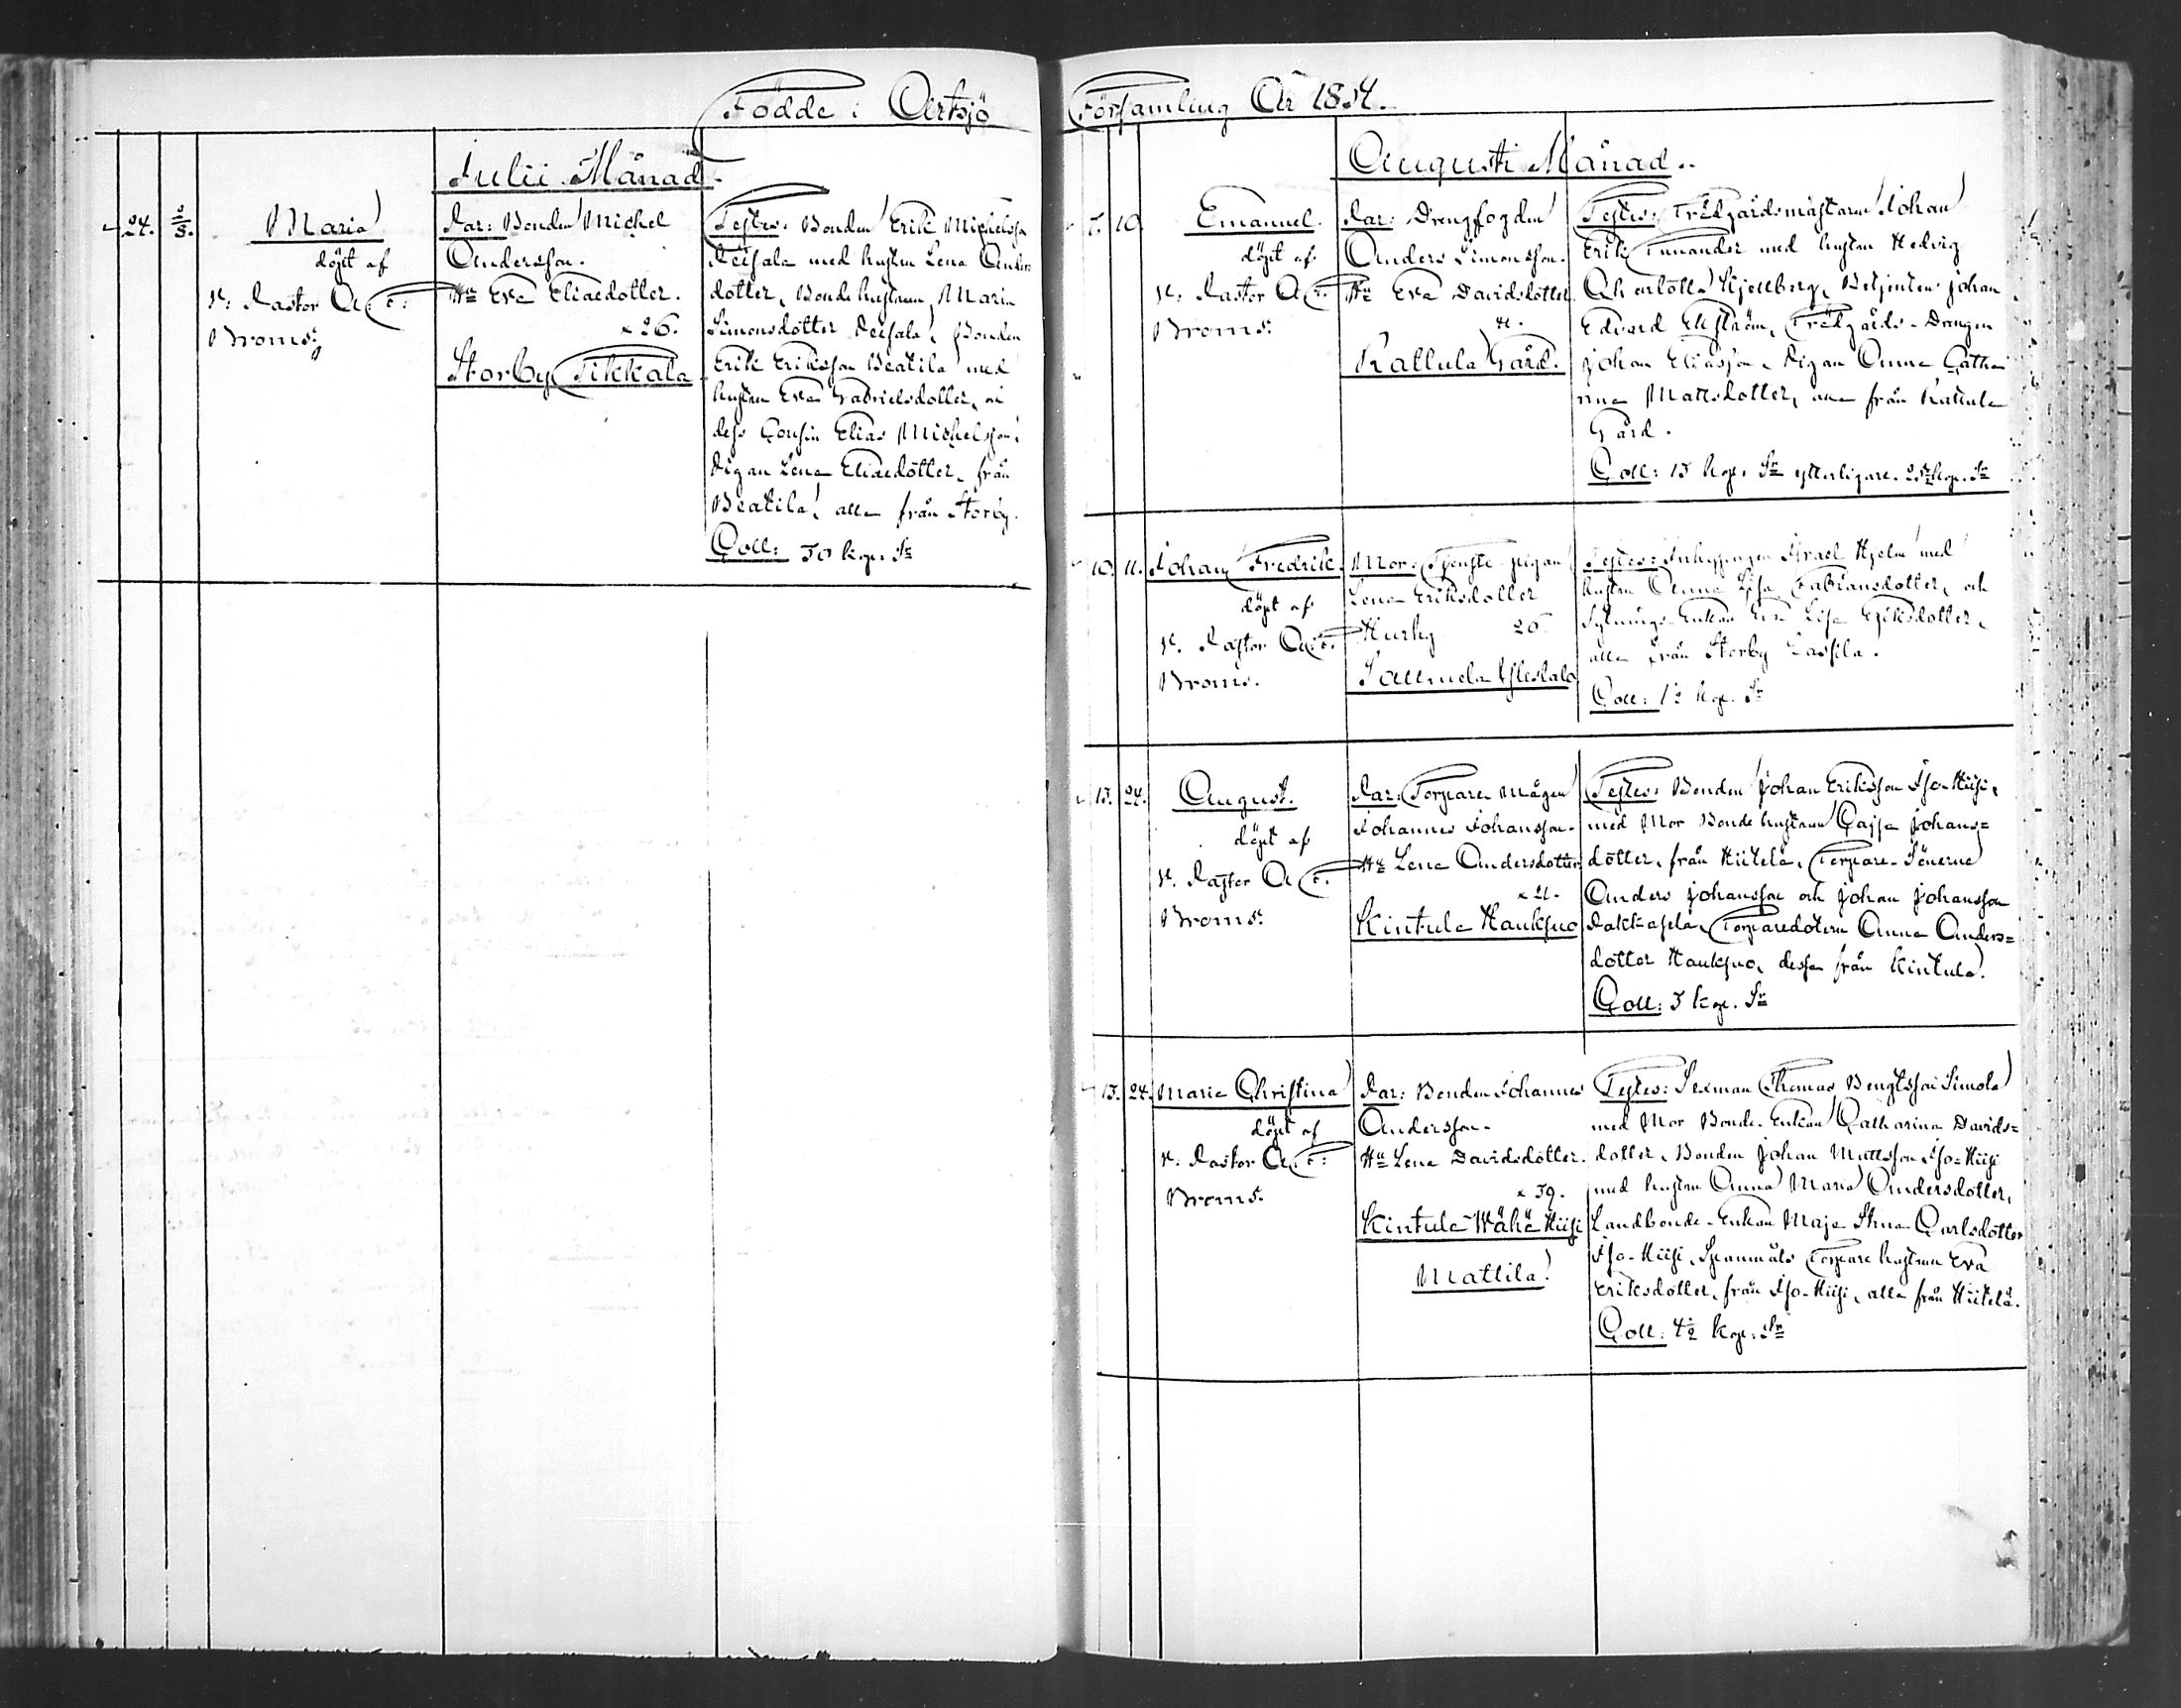 Födde i Artsjö
Julii Månad.
24. 2/8. Maria
döpt af
v. Pastor A. F.
Broms.
Far: Bonden Michel
Andersson.
Hu Eva Eliaedotter.
26.
Storby Tikkala
Testes: Bonden Erik Michelsson
med hustru Lena Anders
dotter, Bondehustrun Maria
Simonsdotter Bonden
Erik Eriksson Beatila med
hustru Eva Gabrielsdotter,
dess Cousin Elias Michelsson,
Pigan Lena Eliaedotter, från
Beatila, alla från Storby.
Coll: 30 kop. Sr
Församling År 1854.
Augusti Månad.
7. 10. Emanuel.
döpt af
v. Pastor A. F.
Broms.
Far: Drengfogden
Anders Simonsson.
Hu Eva Davidsdotter.
41.
Rattula Gård.
Testes: Trädgårdsmästaren Johan
Erik Tunander med hustru Hedvig
Charlotta Hjellberg, Betjenten Johan
Edvard Ekström, Trädgårds-Drengen
Johan Eliasson, Pigan Anna Catha
rina Mattsdotter, alla från Rattula
Gård.
Coll: 15 kop. Sr ytterligare kop. Sr
10. 11. Johan Fredrik.
döpt af
v. Pastor A. F.
Broms.
Mor: Tjenste-pigan
Lena Eriksdotter
Hurky 26.
Salmela Ylestalo
Testes: Inhysingen Israel Hjelm med
hustru Anna Lisa Fabiansdotter, och
Sytnings-Enkan Eva Lisa Eriksdotter,
alla från Storby Lassila.
Coll: 1½ kop. Sr
13. 24. August.
döpt af
v. Pastor A. F.
Broms.
Far: Torpare mågen
Johannes Johansson.
Hu Lena Andersdotter.
21.
Kintula Hauksuo
Testes: Bonden Johan Eriksson Iso-Hiisi,
med Mor Bondehustrun Cajsa Johans=
dotter, från Hiitelä, Torpare-Sönerne
Anders Johansson och Johan Johansson
Torparedotern Anna Anders=
dotter Hauksuo, dessa från Kintula.
Coll: 3 kop. Sr
13. 24. Maria Christina
döpt af
v. Pastor A. F.
Broms.
Far: Bonden Johannes
Andersson.
Hu Lena Davidsdotter.
39.
Kintula Wähä Hiisi
Mattila.
Testes: Sexman Thomas Bengtsson Simola
med Mor Bonde-Enkan Catharina Davids=
dotter, Bonden Johan Mattsson Iso-Hiisi
med hustru Anna Maria Andersdotter,
Landbonde-Enkan Maja Stina Carlsdotter
Iso-Hiisi, Spanmåls Torpare hustrun Eva
Eriksdotter, från Iso-Hiisi, alla från Hiitelä.
Coll: 4½ kop. Sr